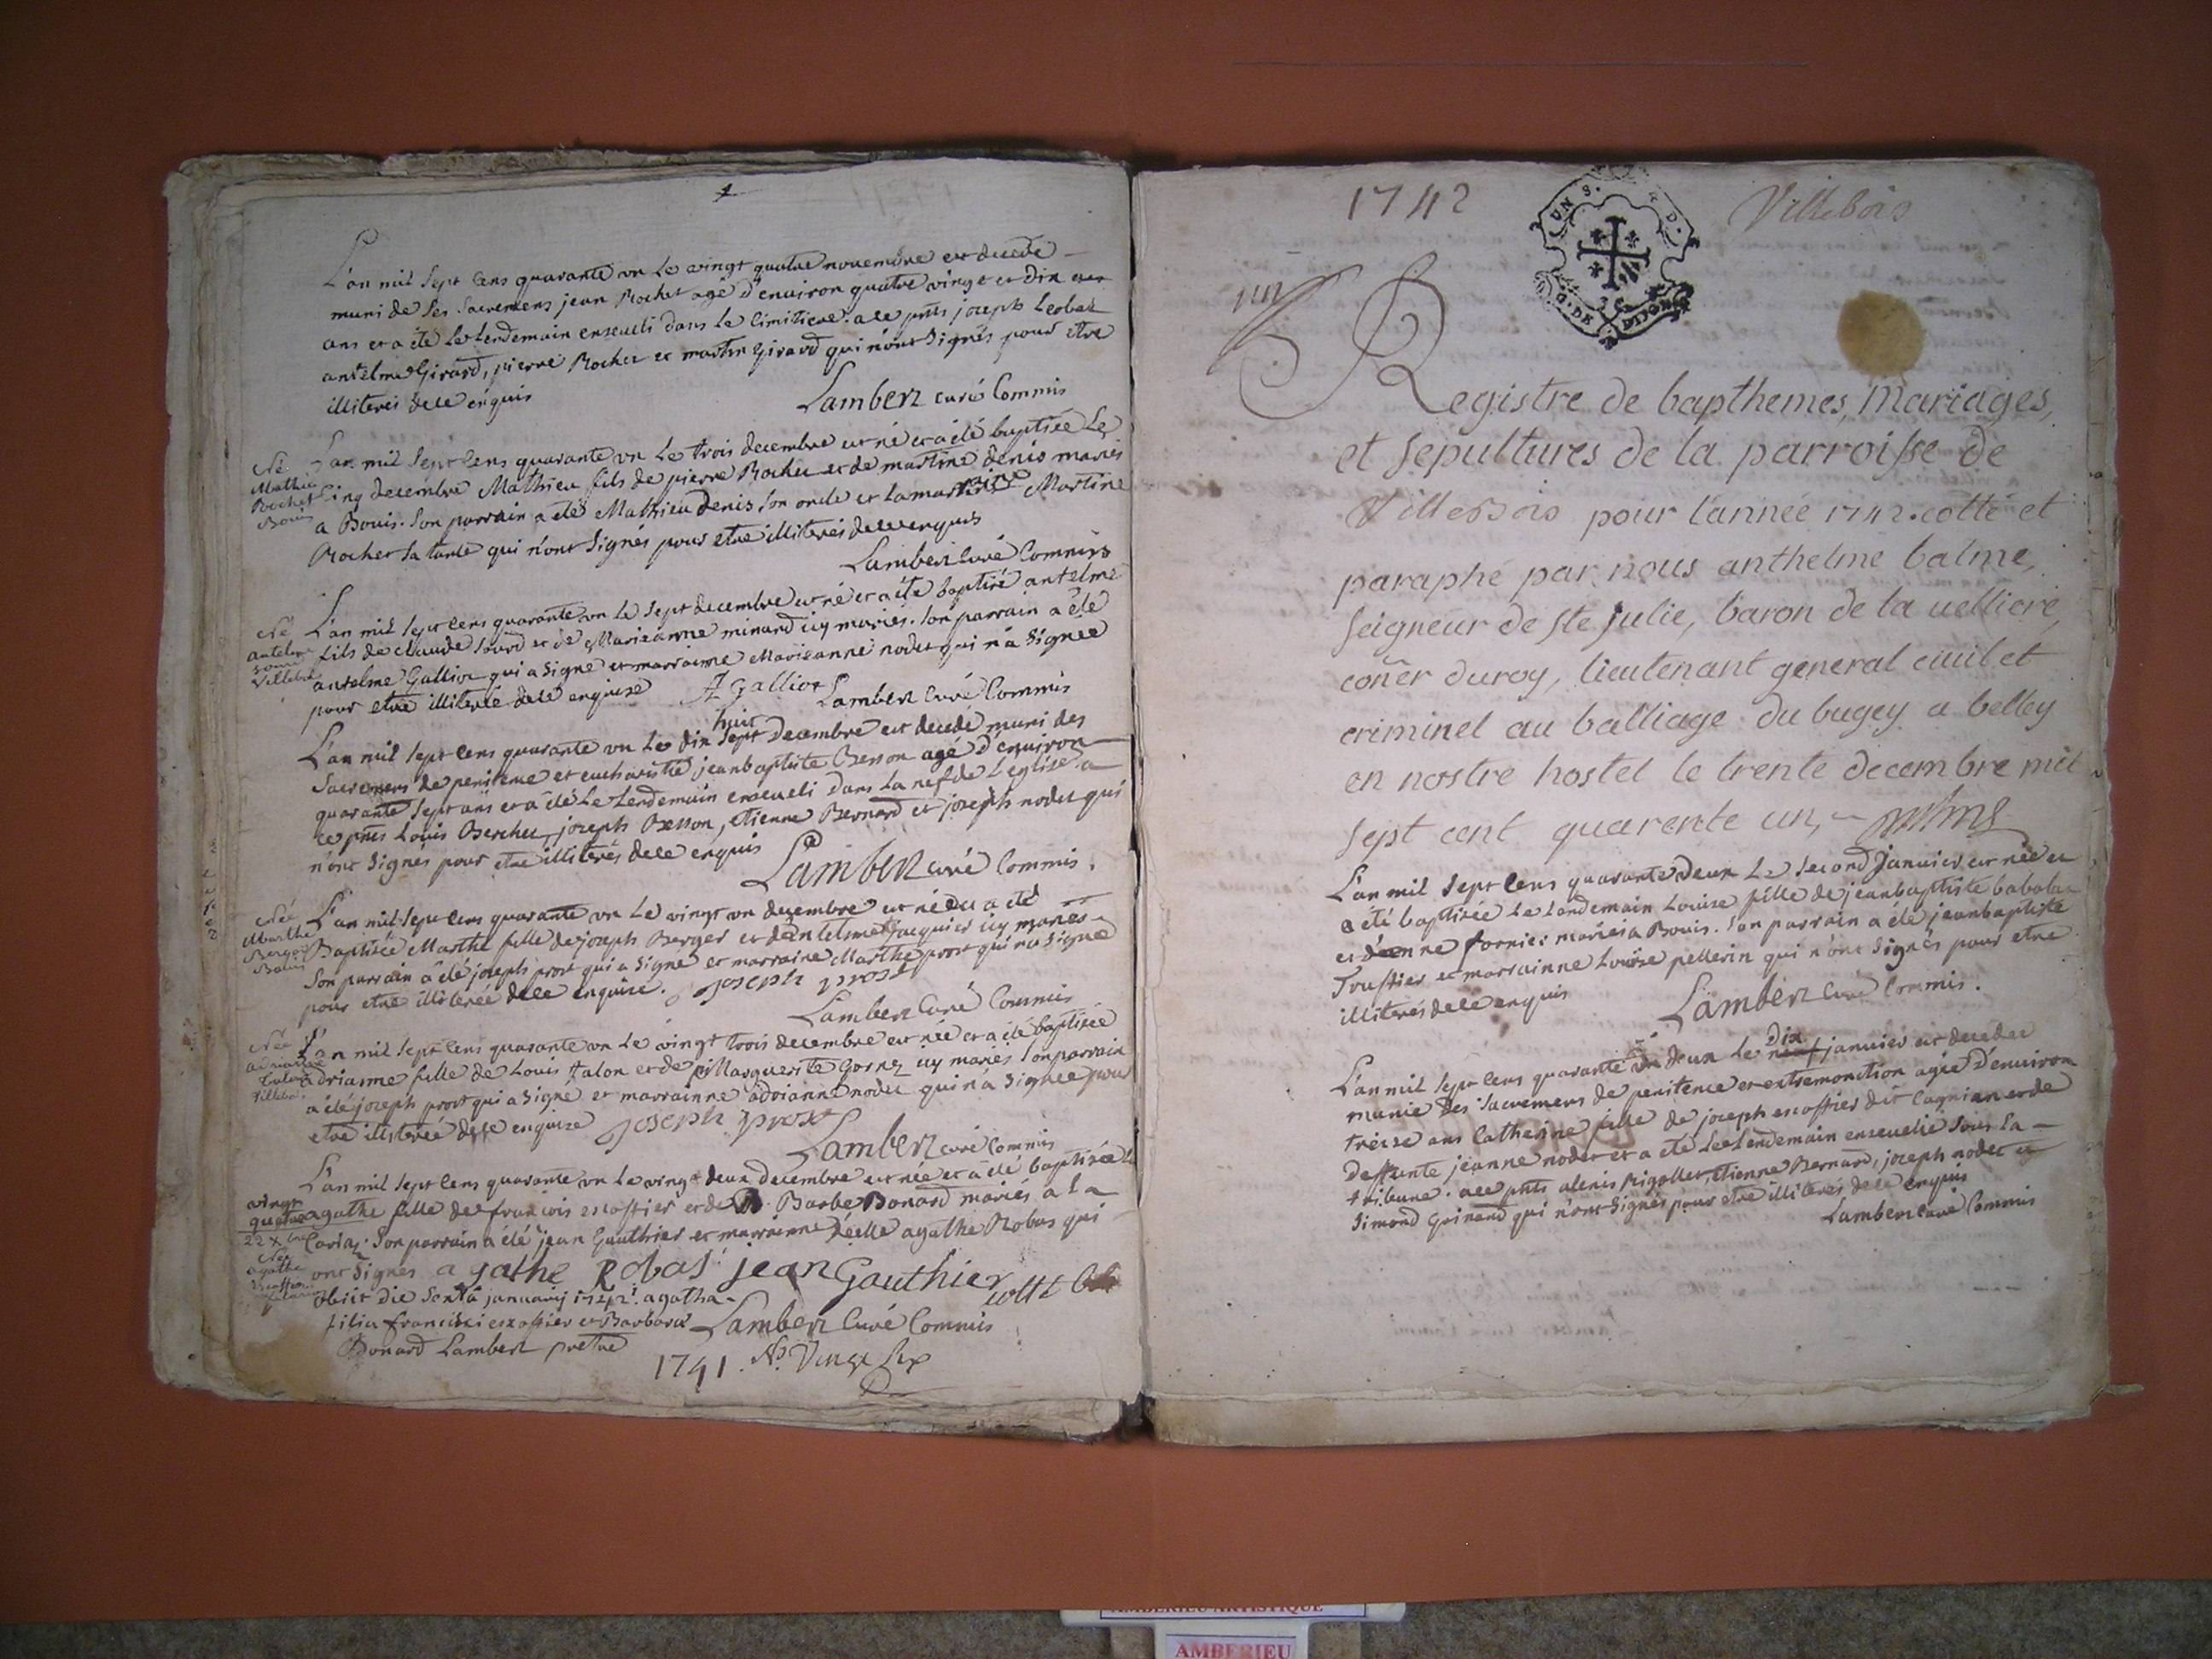 1
L'an mil sept cens quarante un le vingt quatre novembre est decede
muni de ses sacremens jean Rochet agé d'environ quatre vingt et dix
ans et a été le lendemain enseueli dans le cimitiere. a ce pnts joseph
antelme Girard, pierre Rochet et martin Girard qui n'ont signés pour etre
illiterés de ce enquis
Lambert curé Commis
Né
Mathieu
Rochet
Bouis
L'an mil sept cens quarante un le trois decembre est né et a été baptisé le
cinq decembre Mathieu fils de pierre Rochet et de martine denis mariés
a Bouis. Son parrain a été Mathieu Denis son oncle et la marraine Martine
Rochet sa tante qui n'ont signés pour etre illiterés de ce enquis
Lambert Curé Commis
Né
antelme
Villebois
L'an mil sept cens quarante un le sept decembre est né et a été baptisé antelme
fils de claude sourd et de Marieanne minand icy mariés. Son parrain a été
antelme Galliot qui a signé et marraine Marieanne nodet qui n'a signée
pour etre illiterée de ce enquise
A Galliot
Lambert Curé Commis
huit
L'an mil sept cens quarante un le dix sept Decembre est decedé muni des
Sacremens de penitence et eucharistie jeanbaptiste Besson agé d'environ
quarante sept ans et a été le lendemain enseueli dans la nef de l'eglise a
ce pnts Louis Berchet, joseph Besson, etienne Bernard et joseph nodet qui
n'ont signés pour etre illiterés de ce enquis
Lambert curé Commis.
Née
Marthe
Berger
L'an mil sept cens quarante un le vingt un decembre est née et a eté
Baptisée Marthe fille de joseph Berger et d'antelmet jacquier icy mariés
Son parrain a été joseph prost qui a signé et marraine Marthe prost qui n'a signé
pour etre illiterée de ce enquise.
joseph prost
Lambert Curé Commis
Née
adrianne
talon
Villebois
L'an mil sept cens quarante un le vingt trois decembre est née et a été baptisée
adrianne fille de Louis talon et de Marguerite Gornez icy mariés son parrain
a été joseph prost qui a signé et marrainne adrianne nodet qui n'a signée pour
etre illiterée de ce enquise
joseph prost
Lambert curé Commis
L'an mil sept cens quarante un le vingt deux decembre est née et a été baptisée le
vingt
quatre
agathe fille de françois escoffier et de Barbe Bonard mariés a la
Son parrain a été jean Gauthier et marrainne delle agathe Robas qui
Née
agathe
escoffier
ont signés agathe Robas jean Gauthier
obiit die sexta januarij 1742. agatha
filia francisci escoffier et Barbara
Bonard Lambert pretre
Lambert Curé Commis
1741. No. Vingt Six
1742
Villebois
UN S.
G. DE DIJON
un
Registre de bapthemes, mariages,
et sepultures de la parroisse de
Villebois pour l'année 1742. cotté et
paraphé par nous anthelme balme,
seigneur de ste julie, baron de la uelliere,
coñer du roy, lieutenant general ciuil et
criminel au balliage du bugey a belley
en nostre hostel le trente decembre mil
sept cent quarente un,
L'an mil sept cens quarante deux le second januier est née et
a été baptisée le landemain Louise fille de jeanbaptiste babolas
et d'anne fornier mariés a Bouis. Son parrain a été jeanbaptiste
Touffier et marrainne Louise pellerin qui n'ont signés pour etre
illiterés de ce enquis
Lambert Curé Commis.
L'an mil sept cens quarante deux le neuf dix januier est decedée
munie des sacremens de penitence et extremonction agée d'environ
treise ans Catherine fille de joseph escoffier dit Cagnian et de
deffunte jeanne nodet et a eté le lendemain enseuelie sous la
tribune. a ce pnts alexis rigollet, etienne Bernard, joseph nodet et
simond Grinand qui n'ont signés pour etre illiterés de ce enquis
Lambert curé Commis
AMBERIEU ARTISTIQUE
AMBERIEU